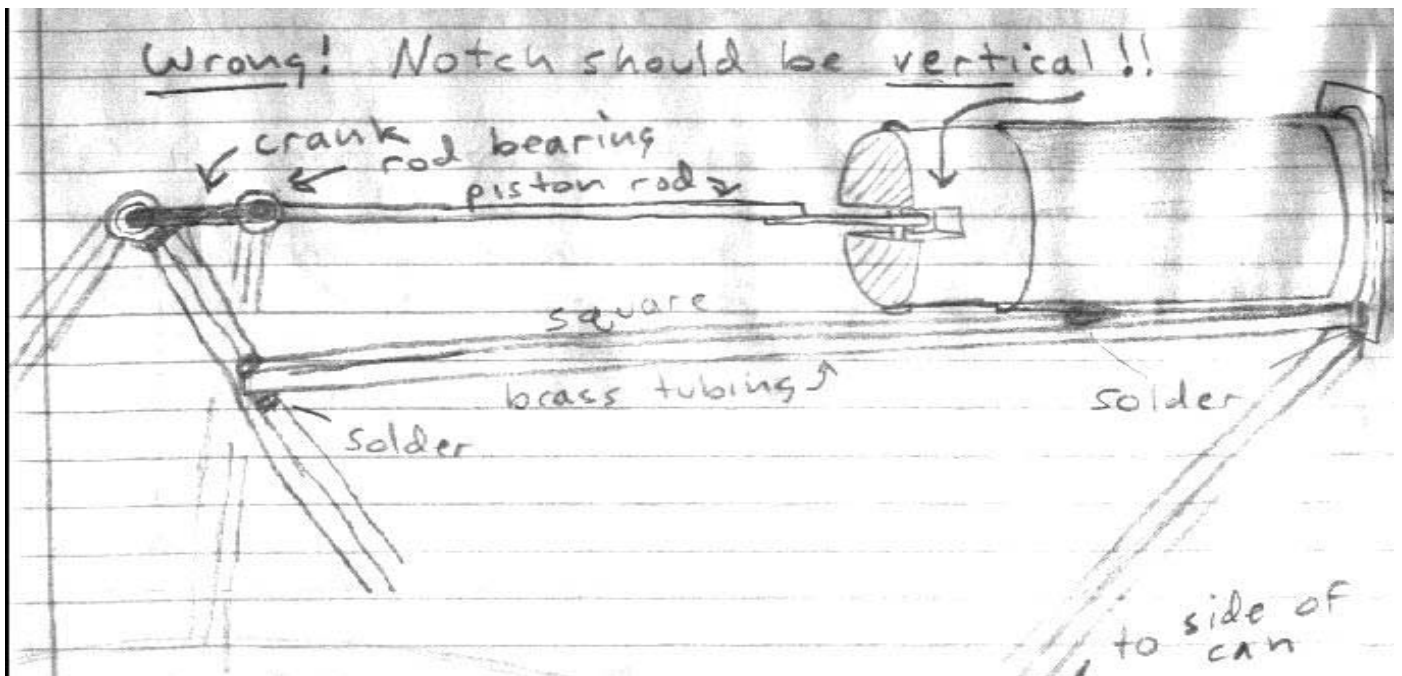 Wrong! Notch should be vertical!!
crank
rod bearing
piston rod
square
brass tubing
solder
solder
to side of
can